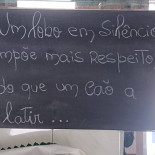 Um lobo em Silêncio
impõe mais Respeito
do que um cão a
latir...